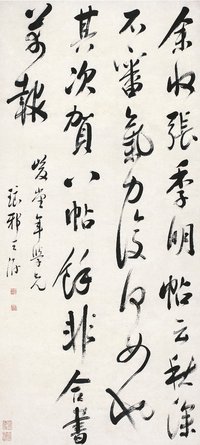 余收張季明帖云秋深
不審氣力復何如也
其次賀八帖餘非合書
報
堂年學兄
琅邪王澍